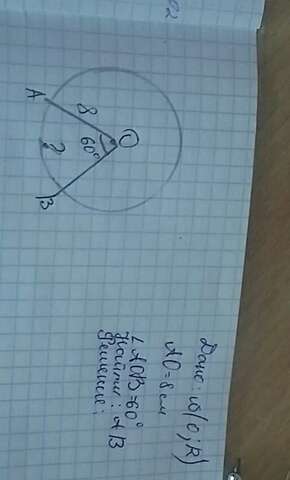 Дано: ω(O; R)
AO = 8 см
∠AOB = 60°
Найти: AB
Решение:
A
8
O
60°
?
B